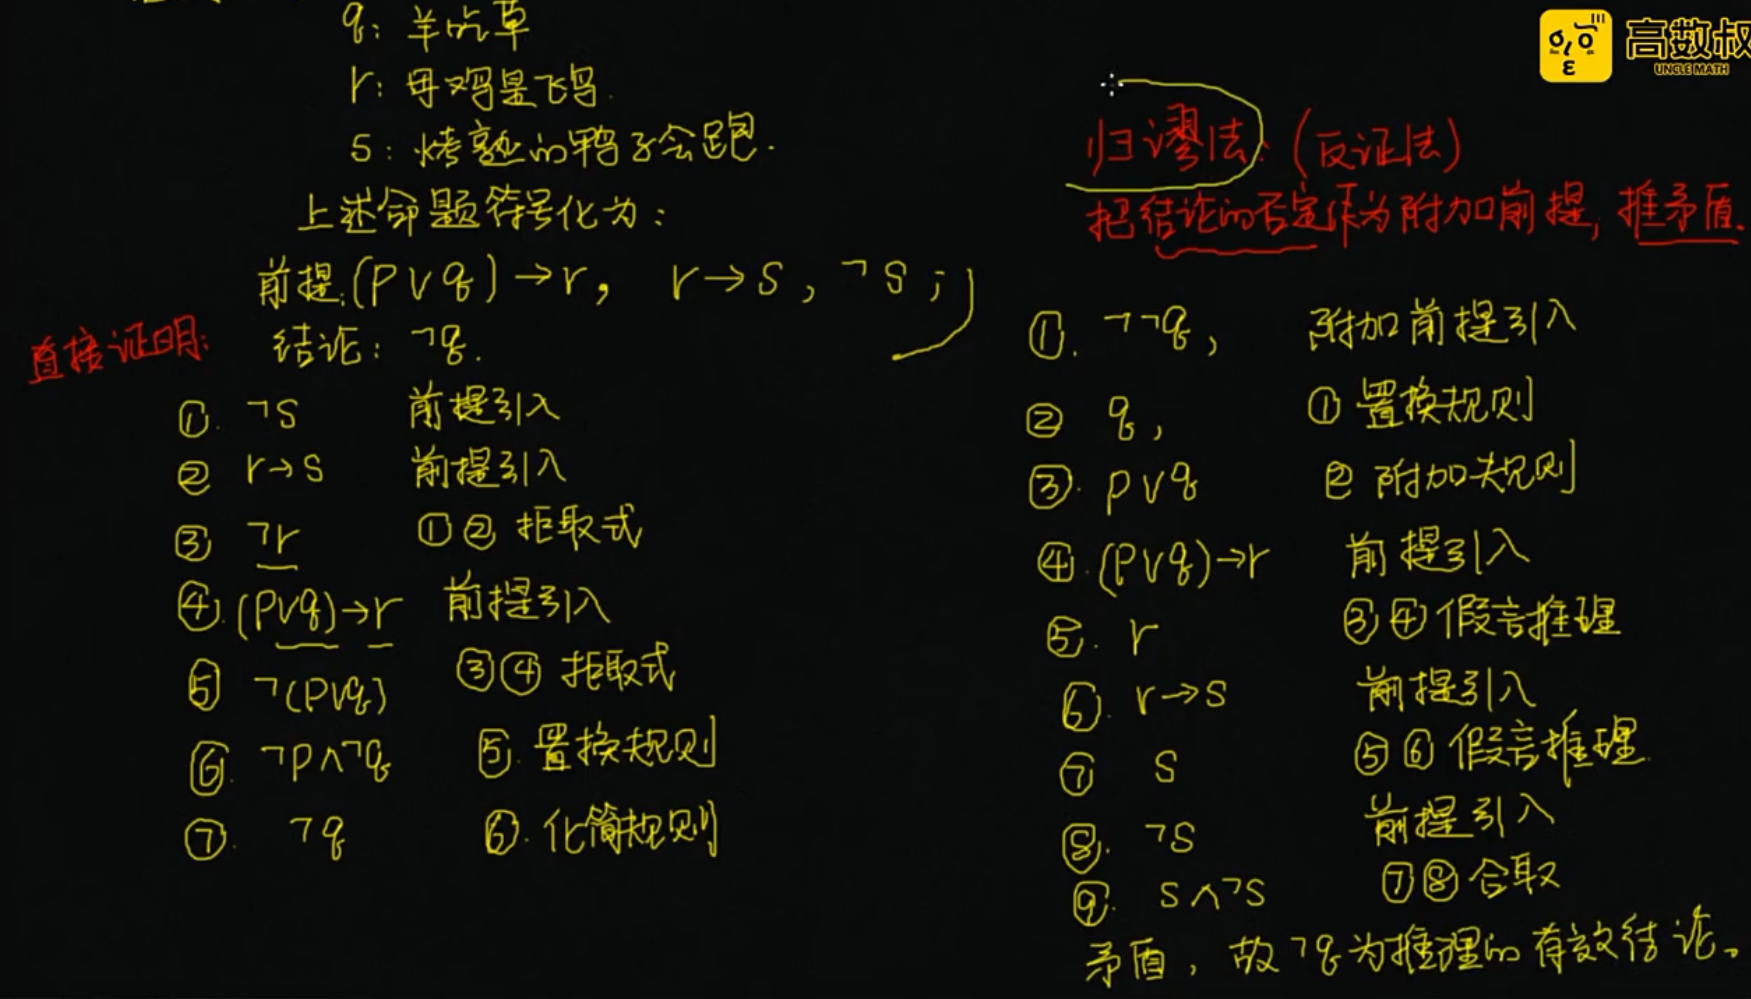 q: 羊吃草
r: 母鸡是飞鸟.
s: 烤熟的鸭子会跑.
上述命题符号化为:
前提:(p∨q)→r, r→s, ¬s;
结论: ¬q.
直接证明:
①. ¬s 前提引入
② r→s 前提引入
③ ¬r ①②拒取式
④.(p∨q)→r 前提引入
⑤ ¬(p∨q) ③④拒取式
⑥. ¬p∧¬q ⑤.置换规则
⑦. ¬q ⑥.化简规则
高数叔
UNCLE MATH
归谬法:(反证法)
把结论的否定作为附加前提,推矛盾.
①. ¬¬q, 附加前提引入
② q, ①置换规则
③. p∨q ②附加规则
④.(p∨q)→r 前提引入
⑤. r ③④假言推理
⑥. r→s 前提引入
⑦ s ⑤⑥假言推理.
⑧. ¬s 前提引入
⑨. s∧¬s ⑦⑧合取
矛盾,故¬q为推理的有效结论。